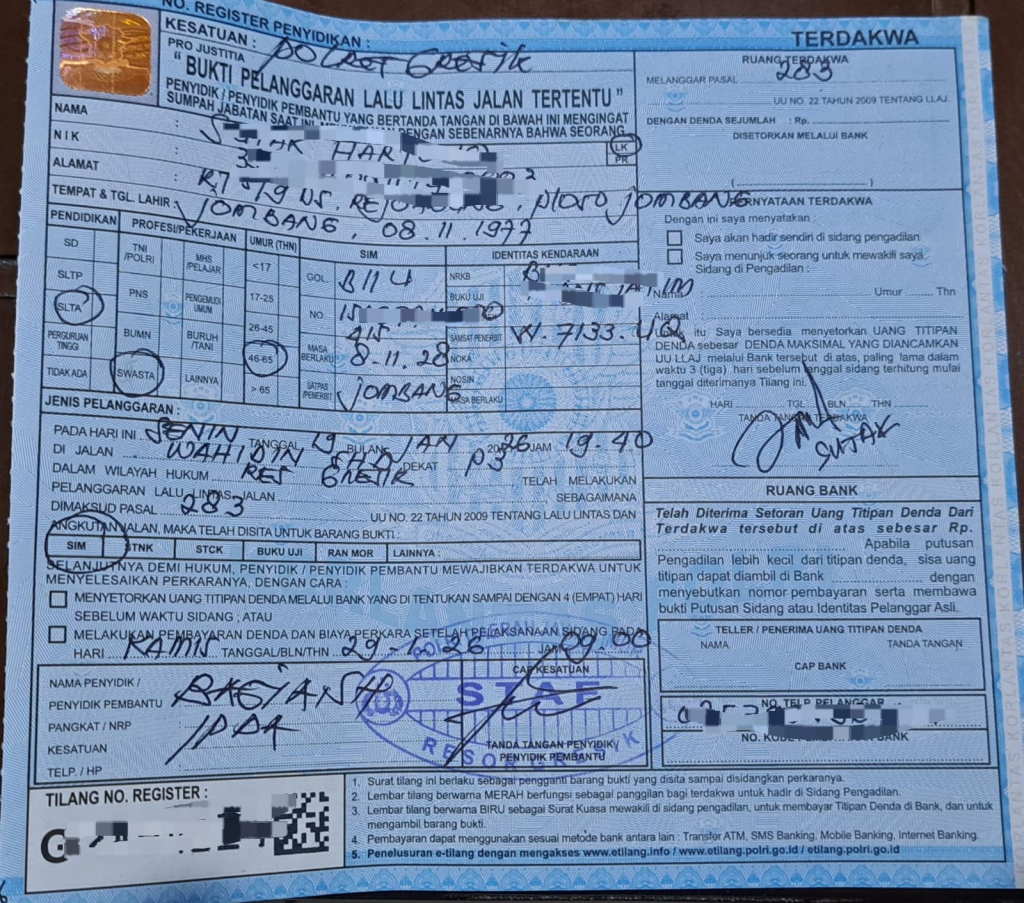 NO. REGISTER PENYIDIKAN :
KESATUAN : POLRES GRESIK
PRO JUSTITIA
"BUKTI PELANGGARAN LALU LINTAS JALAN TERTENTU"
PENYIDIK / PENYIDIK PEMBANTU YANG BERTANDA TANGAN DI BAWAH INI MENGINGAT
SUMPAH JABATAN SAAT INI DENGAN SEBENARNYA BAHWA SEORANG
NAMA :
LK
PR
NIK :
ALAMAT : NS. NLOSO JOMBANG
TEMPAT & TGL. LAHIR : JOMBANG, 08.11.1977
PENDIDIKAN PROFESI/PEKERJAAN UMUR (THN) SIM IDENTITAS KENDARAAN
SD TNI /POLRI MHS /PELAJAR <17 GOL. B II U NRKB
SLTP PNS PENGEMUDI UMUM 17-25 NO. BUKU UJI
SLTA BUMN BURUH /TANI 26-45 MASA BERLAKU 8-11.28 SAMSAT PENERBIT W. 7133. UQ
PERGURUAN TINGGI SWASTA LAINNYA 46-65 SATPAS /PENERBIT JOMBANG NOKA
TIDAK ADA > 65 NOSIN
MASA BERLAKU
JENIS PELANGGARAN :
PADA HARI INI SENIN TANGGAL 19 BULAN JAN 2026 JAM 19.40
DI JALAN WAHIDIN SHD DEKAT P3
DALAM WILAYAH HUKUM RES GRESIK TELAH MELAKUKAN
PELANGGARAN LALU LINTAS JALAN SEBAGAIMANA
DIMAKSUD PASAL 283 UU NO. 22 TAHUN 2009 TENTANG LALU LINTAS DAN
ANGKUTAN JALAN, MAKA TELAH DISITA UNTUK BARANG BUKTI :
SIM STNK STCK BUKU UJI RAN MOR LAINNYA :
SELANJUTNYA DEMI HUKUM, PENYIDIK / PENYIDIK PEMBANTU MEWAJIBKAN TERDAKWA UNTUK
MENYELESAIKAN PERKARANYA, DENGAN CARA :
MENYETORKAN UANG TITIPAN DENDA MELALUI BANK YANG DI TENTUKAN SAMPAI DENGAN 4 (EMPAT) HARI
SEBELUM WAKTU SIDANG ; ATAU
MELAKUKAN PEMBAYARAN DENDA DAN BIAYA PERKARA SETELAH PELAKSANAAN SIDANG PADA
HARI KAMIS TANGGAL/BLN/THN 29-1-26 JAM 09.00
NAMA PENYIDIK /
PENYIDIK PEMBANTU BAGIANSH
PANGKAT / NRP IPDA
KESATUAN
TELP. / HP
CAP KESATUAN
STAF
RESOR GRESIK
TANDA TANGAN PENYIDIK/
PENYIDIK PEMBANTU
TILANG NO. REGISTER :
G
TERDAKWA
RUANG TERDAKWA
MELANGGAR PASAL 283
UU NO. 22 TAHUN 2009 TENTANG LLAJ
DENGAN DENDA SEJUMLAH : Rp.
DISETORKAN MELALUI BANK
PERNYATAAN TERDAKWA
Dengan ini saya menyatakan :
Saya akan hadir sendiri di sidang pengadilan
Saya menunjuk seorang untuk mewakili saya
Sidang di Pengadilan :
Nama Umur Thn
Alamat
Untuk itu Saya bersedia menyetorkan UANG TITIPAN
DENDA sebesar DENDA MAKSIMAL YANG DIANCAMKAN
UU-LLAJ melalui Bank tersebut di atas, paling lama dalam
waktu 3 (tiga) hari sebelum tanggal sidang terhitung mulai
tanggal diterimanya Tilang ini.
HARI TGL BLN THN
TANDA TANGAN TERDAKWA
SUTAK
RUANG BANK
Telah Diterima Setoran Uang Titipan Denda Dari
Terdakwa tersebut di atas sebesar Rp.
Apabila putusan
Pengadilan lebih kecil dari titipan denda, sisa uang
titipan dapat diambil di Bank dengan
menyebutkan nomor pembayaran serta membawa
bukti Putusan Sidang atau Identitas Pelanggar Asli.
TELLER / PENERIMA UANG TITIPAN DENDA
NAMA TANDA TANGAN
CAP BANK
NO. TELP. PELANGGAR
NO. KODE BANK
1. Surat tilang ini berlaku sebagai pengganti barang bukti yang disita sampai disidangkan perkaranya.
2. Lembar tilang berwarna MERAH berfungsi sebagai panggilan bagi terdakwa untuk hadir di Sidang Pengadilan.
3. Lembar tilang berwarna BIRU sebagai Surat Kuasa mewakili di sidang pengadilan, untuk membayar Titipan Denda di Bank, dan untuk
mengambil barang bukti.
4. Pembayaran dapat menggunakan sesuai metode bank antara lain : Transfer ATM, SMS Banking, Mobile Banking, Internet Banking.
5. Penelusuran e-tilang dengan mengakses www.etilang.info / www.etilang.polri.go.id / etilang.polri.go.id